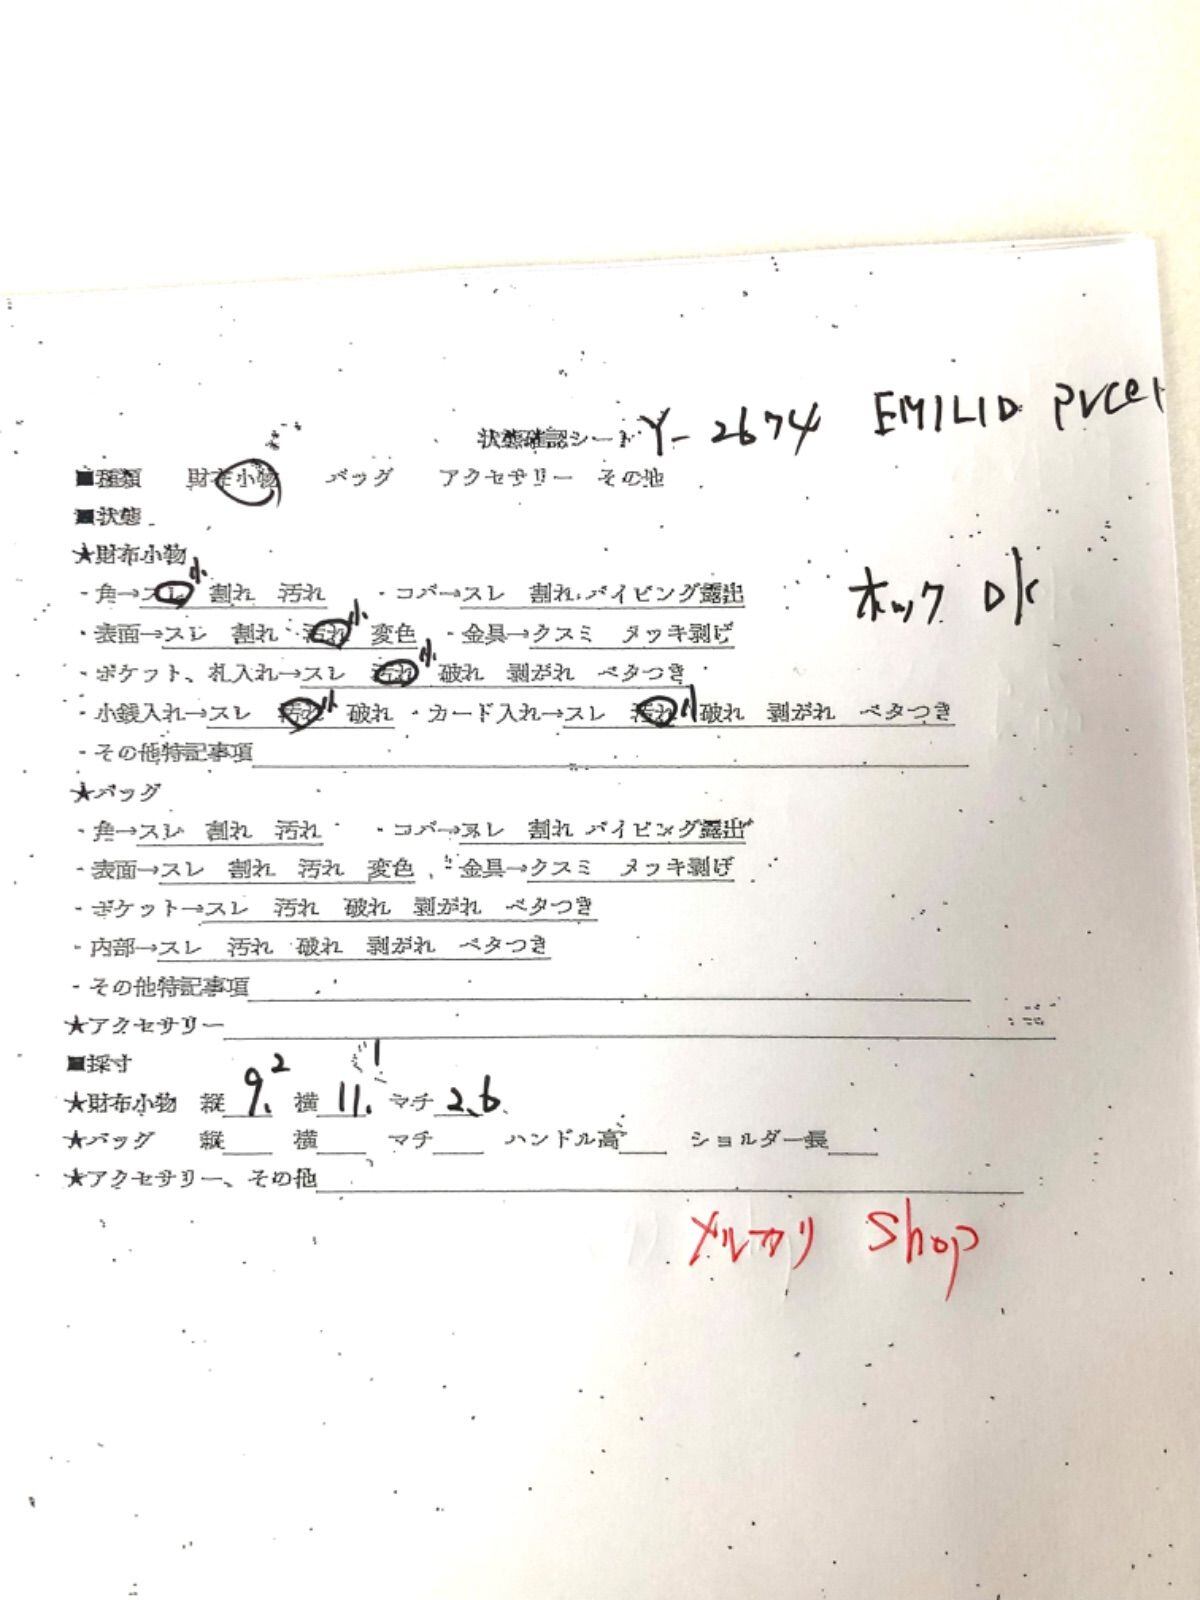 状態確認シート Y-2674 EMILIO PUCCI
■種類 財布小物 バッグ アクセサリー その他
■状態
★財布小物
・角→スレ 小 割れ 汚れ ・コバ→スレ 割れ パイピング露出 ホック OK
・表面→スレ 割れ 汚れ 小 変色 ・金具→クスミ メッキ剥げ
・ポケット、札入れ→スレ 汚れ 小 破れ 剥がれ ベタつき
・小銭入れ→スレ 汚れ 小 破れ ・カード入れ→スレ 汚れ 小 破れ 剥がれ ベタつき
・その他特記事項
★バッグ
・角→スレ 割れ 汚れ ・コバ→スレ 割れ パイピング露出
・表面→スレ 割れ 汚れ 変色 ・金具→クスミ メッキ剥げ
・ポケット→スレ 汚れ 破れ 剥がれ ベタつき
・内部→スレ 汚れ 破れ 剥がれ ベタつき
・その他特記事項
★アクセサリー
■採寸
★財布小物 縦 9.2 横 11.1 マチ 2.6
★バッグ 縦 横 マチ ハンドル高 ショルダー長
★アクセサリー、その他
メルカリ Shop